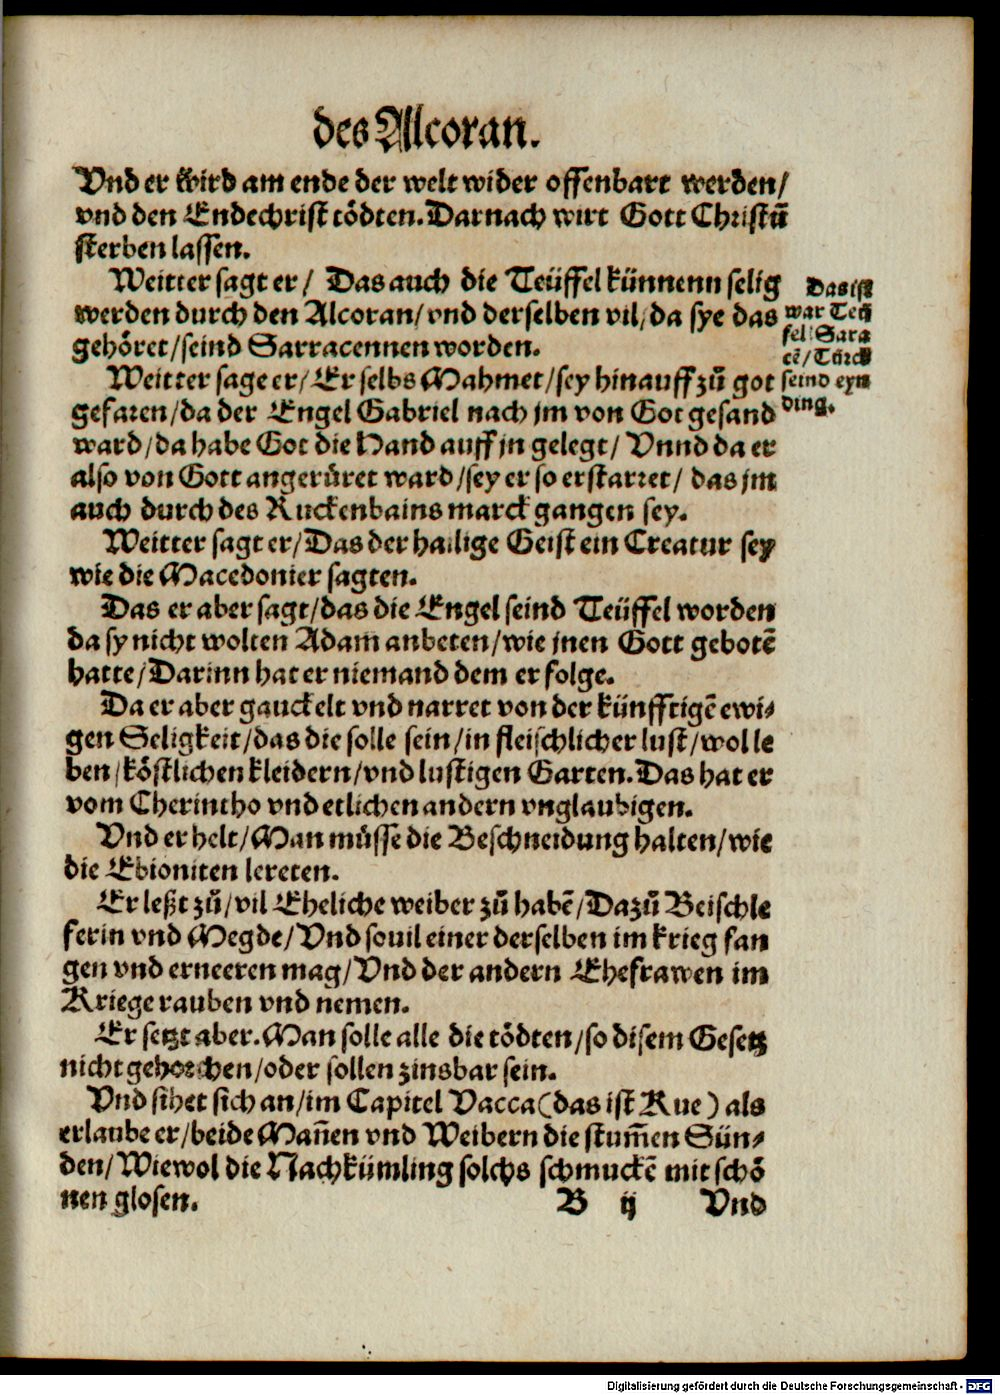 des Alcoran.
Vnd er wird am ende der welt wider offenbart werden/
vnd den Endechrist tödten. Darnach wirt Gott Christū
sterben lassen.
Weitter sagt er/ Das auch die Teüffel künnenn selig
werden durch den Alcoran/vnd derselben vil/da sye das
gehöret/seind Sarracennen worden.
Das ist
war Teü
fel/Sara
cē/Türck
seind eyn
ding.
Weitter sage er/Er selbs Mahmet/sey hinauff zů got
gefaren/da der Engel Gabriel nach jm von Got gesand
ward/da habe Got die Hand auff jn gelegt/ Vnnd da er
also von Gott angerůret ward/sey er so erstarret/ das jm
auch durch des Ruckenbains marck gangen sey.
Weitter sagt er/Das der hailige Geist ein Creatur sey
wie die Macedonier sagten.
Das er aber sagt/das die Engel seind Teüffel worden
da sy nicht wolten Adam anbeten/wie jnen Gott gebotē
hatte/Darinn hat er niemand dem er folge.
Da er aber gauckelt vnd narret von der künfftigē ewi⸗
gen Seligkeit/das die solle sein/in fleischlicher lust/wol le
ben/köstlichen kleidern/vnd lustigen Garten. Das hat er
vom Cherintho vnd etlichen andern vnglaubigen.
Vnd er helt/Man müsse die Beschneidung halten/wie
die Ebioniten lereten.
Er leßt zů/vil Eheliche weiber zů habē/Dazů Beischle
ferin vnd Megde/Vnd souil einer derselben im krieg fan
gen vnd erneeren mag/Vnd der andern Ehefrawen im
Kriege rauben vnd nemen.
Er setzt aber. Man solle alle die tödten/so disem Gesetz
nicht gehorchen/oder sollen zinsbar sein.
Vnd sihet sich an/im Capitel Vacca(das ist Kue) als
erlaube er/beide Mañen vnd Weibern die stum̄en Sün⸗
den/Wiewol die Nachkümling solchs schmuckē mit schö
nen glosen.
B ij Vnd
Digitalisierung gefördert durch die Deutsche Forschungsgemeinschaft - DFG